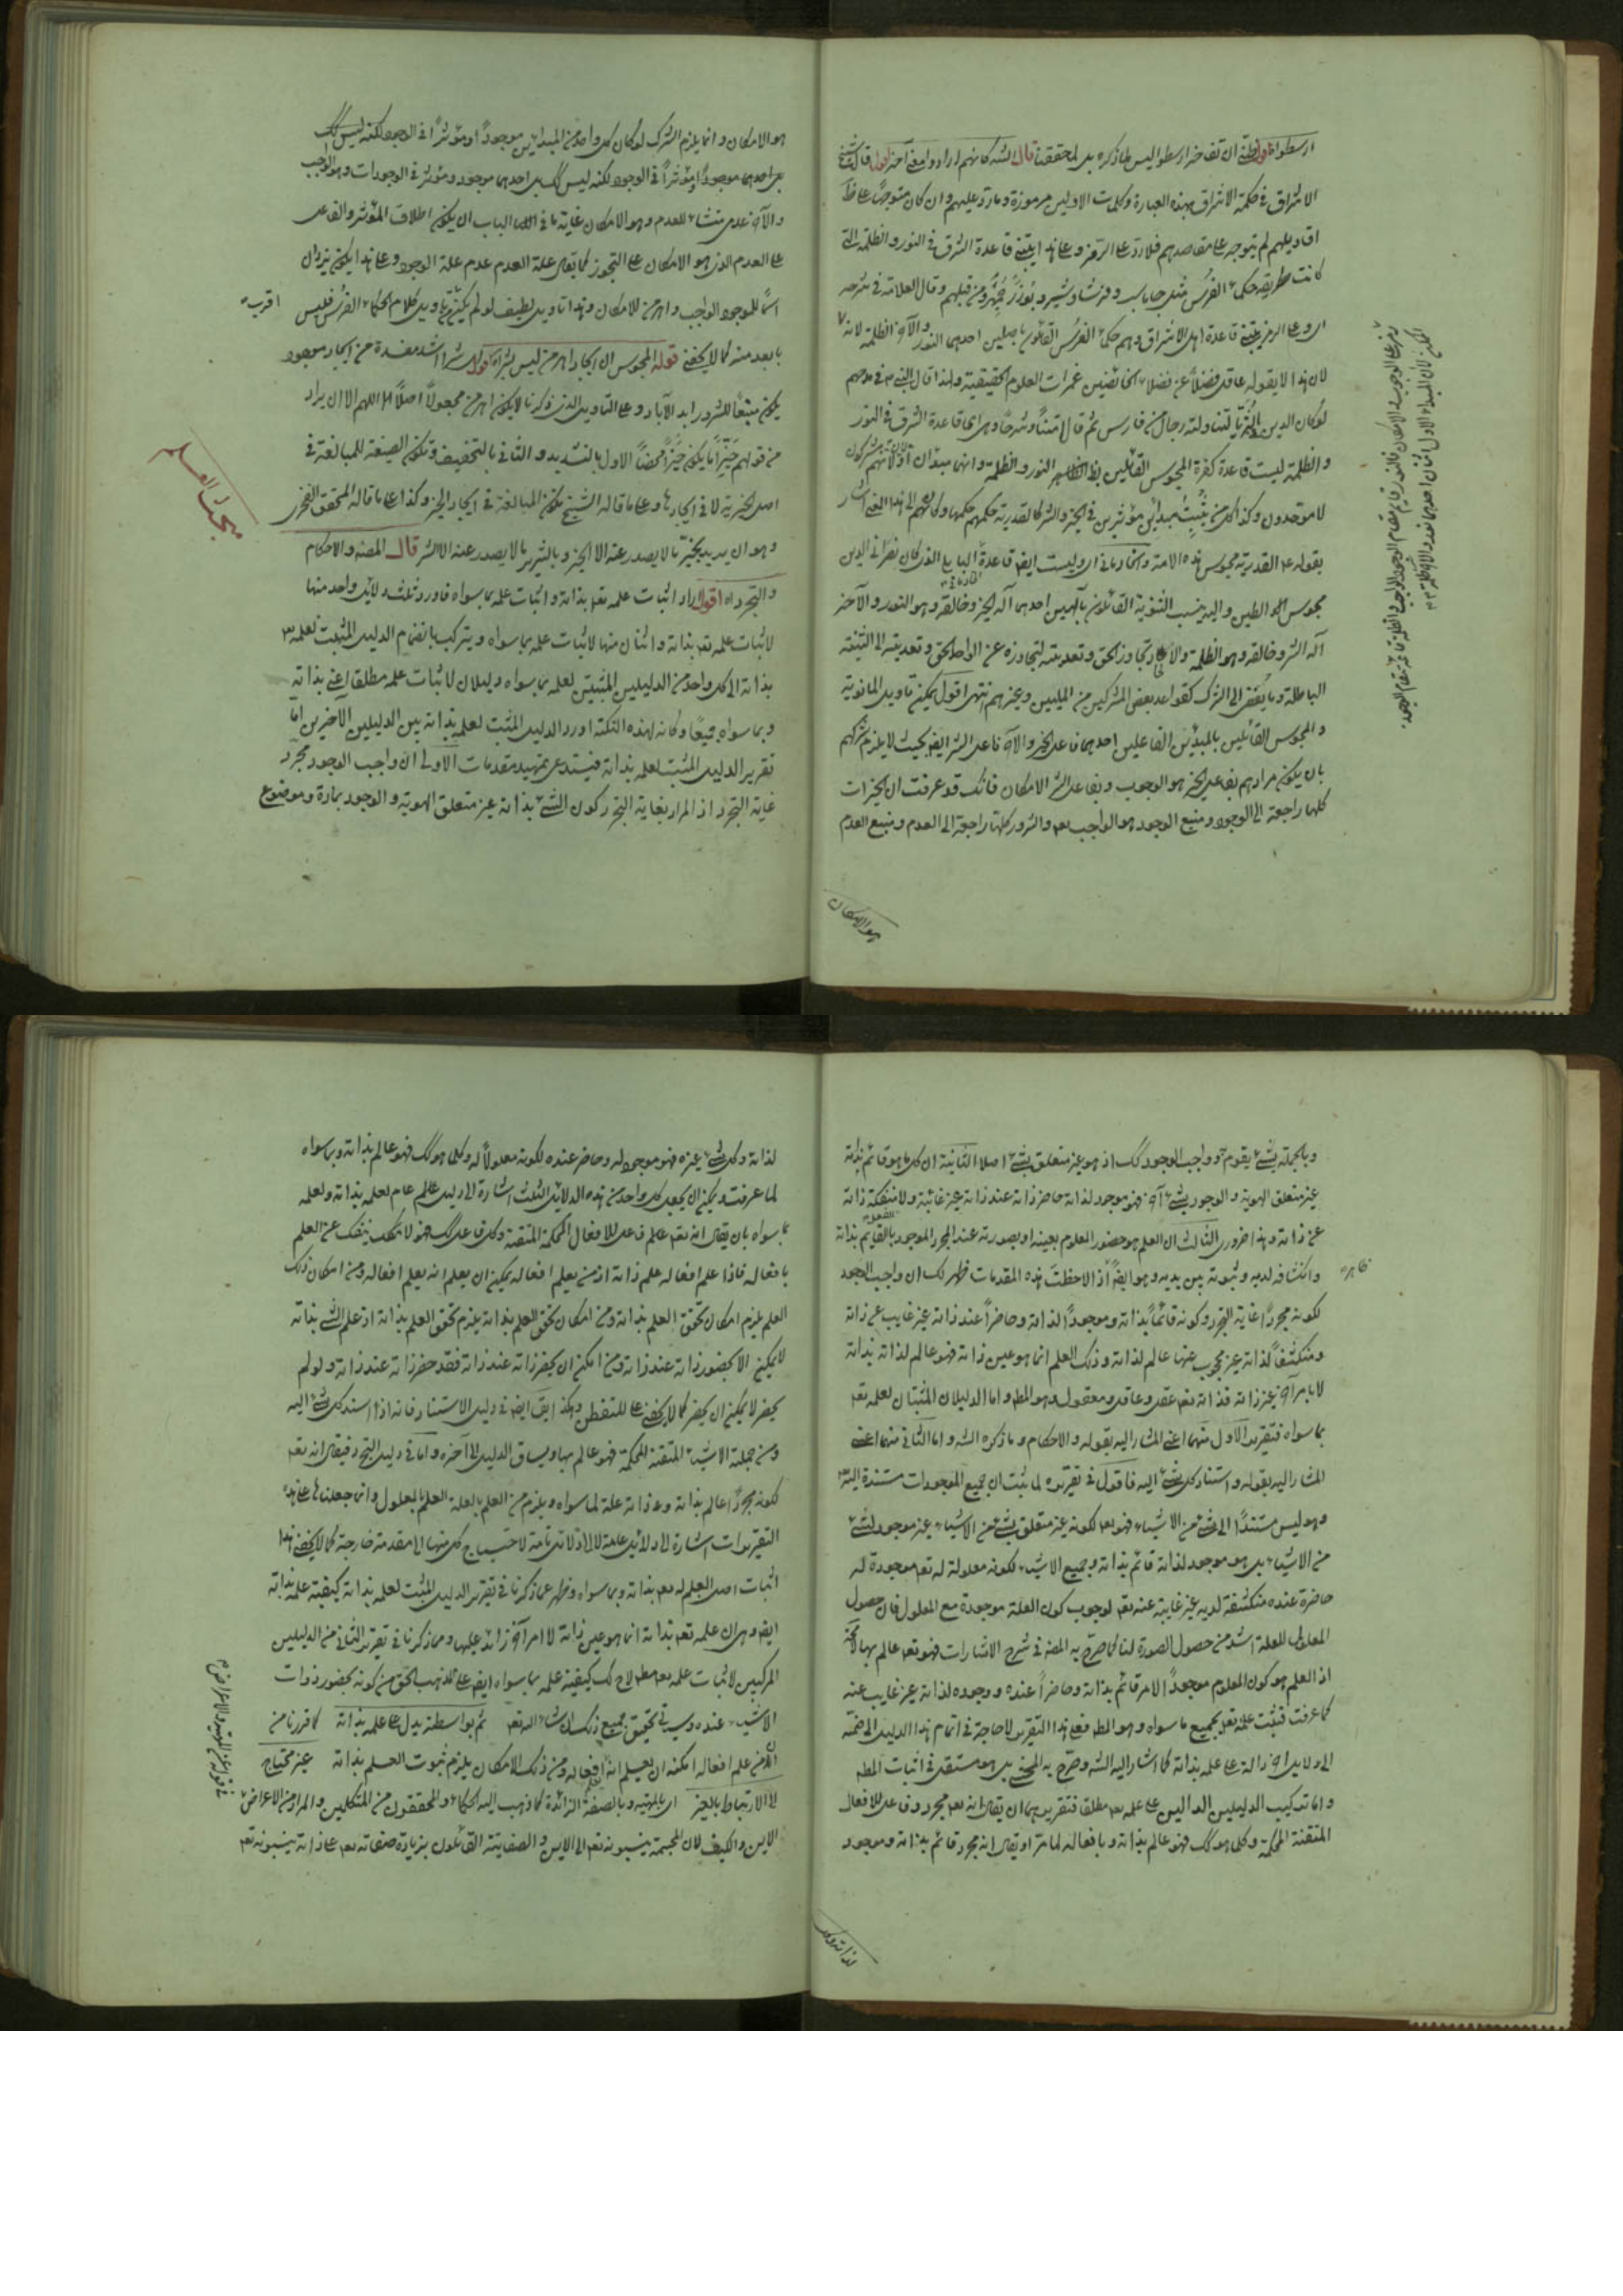 ارسطوا اقول
ان تفاخر ارسطو ليس لما ذكره بل لما حققنا قال الشه كانهم ارادوا معنى آخر اقول قال الشيخ
الاشراق في حكمة الاشراق بهذه العبارة وكلمات الاولين مرموزة وما رد عليهم وان كان متوجها على ظ
اقاويلهم لم يتوجه على مقاصدهم فلا رد على الرمز وعلى هذا يبتنى قاعدة الشرق في النور والظلمة التي
كانت طريقة حكماء الفرس مثل جاماسب وفرشاوشتر وبوذرجمهر ومن قبلهم وقال العلامة في شرحه
اى وعلى الرمز يبتنى قاعدة اهل الاشراق وهم حكماء الفرس القائلون باصلين احدهما النور والآخر الظلمة لانه
لان هذا لا يقوله عاقل فضلا عن فضلاء الخائضين غمرات العلوم الحقيقية ولهذا قال النبي في مدحهم
لو كان الدين بالثريا لتناولته رجال من فارس ثم قال متنا وشرحا وهى اى قاعدة الشرق في النور
والظلمة ليست قاعدة كفرة المجوس القائلين بظاهر النور والظلمة وانهما مبدءان اولان لانهم مشركون
لا موحدون وكذا كل من يثبت مبدئين مؤثرين في الخير والشر كالقدرية حكمهم حكمها وكانه الى هذا المعنى اشار
بقوله القدرية مجوس هذه الامة والحاد مانى اى وليست ايض قاعدة مانى البابلي الذي كان نصرانى الدين
مجوسى الطين واليه ينسب الثنوية القائلون بالهين احدهما اله الخير وخالقه وهو النور والآخر
اله الشر وخالقه وهو الظلمة والالحاد تجاوز الحق وتعديته لتجاوزه عن الواحد الحق وتعديته الى اثنينية
الباطلة وما يفضى الى الشرك كقواعد بعض المشركين من المليين وغيرهم انتهى اقول يمكن تأويل المانوية
والمجوس القائلين بالمبدئين الفاعلين احدهما فاعل الخير والآخر فاعل الشر ايض بحيث لا يلزم شركهم
بان يكون مرادهم بفاعل الخير هو الوجوب وبفاعل الشر الامكان فانك قد عرفت ان الخيرات
كلها راجعة الى الوجود ومنبع الوجود هو الواجب تعالى والشرور كلها راجعة الى العدم ومنبع العدم
هو الامكان
هو الامكان وانما يلزم الشرك لو كان كل واحد من المبدأين موجودا او مؤثرا في الوجود لكنه ليس كك
بل احدهما موجودا ومؤثرا في الوجود لكنه ليس كك بل احدهما موجود ومؤثر في الوجودات وهو الواجب
والآخر عدمى منشاء للعدم وهو الامكان غاية ما في الباب ان يكون اطلاق المؤثر والفاعل
على العدم الذي هو الامكان على التجوز كما يقال علة العدم عدم علة الوجود وعلى هذا يكون يزدان
اسما للموجود الواجب واهرمن للامكان وهذا تاويل لطيف لو لم يكن تأويل كلام الحكماء الفرس فليس
اقرب
بابعد منه كما لا يخفى قوله المجوس ان ايجاد اهرمن ليس بشر اه اقول اشد مفسدة من ايجاد موجود
يكون منبعا للشرور ابد الآباد وعلى التاويل الذي ذكرنا لا يكون اهرمن مجعولا اصلا اللهم الا ان يراد
من قولهم خيرا ما يكون خيرا محضا الاول بالتشديد والثانى بالتخفيف وتكون الصيغة للمبالغة في
اصل الخيرية لا في ايجادها وعلى ما قاله الشيخ تكون المبالغة في ايجاد الخير وكذا على ما قاله المحقق الفخرى
وهو ان يريد بخير ما لا يصدر عنه الا الخير وبالشرير ما لا يصدر عنه الا الشر قال المصنف والاحكام
مبحث العلم
والتجرد اه اقول اراد اثبات علمه تعالى بذاته واثبات علمه بما سواه فاورد ثلث دلائل واحد منها
لاثبات علمه تعالى بذاته واثنان منها لاثبات علمه بما سواه ويتركب بانضمام الدليل المثبت لعلمه
بذاته الى كل واحد من الدليلين المثبتين لعلمه بما سواه دليلان لاثبات علمه مطلقا اعنى بذاته
وبما سواه جميعا وكانه لهذه النكتة اورد الدليل المثبت لعلمه بذاته بين الدليلين الآخرين اما
تقرير الدليل المثبت لعلمه بذاته فيستدعى تمهيد مقدمات الاولى ان واجب الوجود مجرد
غاية التجرد اذ المراد بغاية التجرد كون الشيء بذاته غير متعلق الهوية والوجود بمادة وموضوع
وبالجملة بشيء يقوم به وواجب الوجود كك اذ هو غير متعلق بشيء اصلا الثانية ان كل ما هو قائم بذاته
غير متعلق الهوية والوجود بشيء آخر فهو موجود لذاته حاضر ذاته عند ذاته غير غائبة ولا منفكة ذاته
عن ذاته وهذا ضرورى الثالث ان العلم هو حضور المعلوم بعينه او بصورته عند المجرد الموجود بالفعل القايم بذاته
وانكشافه لديه وثبوته بين يديه وهو ايض ظاهر اذا لاحظت هذه المقدمات ظهر لك ان واجب الوجود
لكونه مجردا غاية التجرد وكونه قائما بذاته وموجودا لذاته وحاضرا عند ذاته غير غايب عن ذاته
ومنكشفا لذاته غير محجوب عنها عالم لذاته وذلك العلم انما هو عين ذاته فهو عالم لذاته بذاته
لا بامر آخر غير ذاته فذاته تعالى عقل وعاقل ومعقول وهو المط واما الدليلان المثبتان لعلمه تعالى
بما سواه فتقرير الاول منهما اعنى المشار اليه بقوله والاحكام وما ذكره الشه واما الثاني منهما اعنى
المشار اليه بقوله واستناد كل شيء اليه فاقول في تقريره لما ثبت ان جميع الموجودات مستندة اليه
وهو ليس مستندا الى شيء من الاشياء فهو تعالى لكونه غير متعلق بشيء من الاشياء غير موجود لشيء
من الاشياء بل هو موجود لذاته قائم بذاته وجميع الاشياء لكونه معلولة له تعالى موجودة له
حاضرة عنده منكشفة لديه غير غايبة عنه تعالى لوجوب كون العلة موجودة مع المعلول فان حصول
المعلول للعلة اشد من حصول الصورة لنا كما صرح به المصنف في شرح الاشارات فهو تعالى عالم بها
اذ العلم هو كون المعلوم موجودا لامر قائم بذاته وحاضرا عنده ووجوده لذاته غير غايب عنه
كما عرفت فثبت علمه تعالى بجميع ما سواه وهو المط فعلى هذا التقرير لا حاجة في اتمام هذا الدليل الى ضمه
الى دلايل اخر دالة على علمه بذاته كما اشار اليه الشه وصرح به المحشى بل هو مستقل في اثبات المط
واما تركيب الدليلين الدالين على علمه تعالى مطلقا فتقريرهما ان يقال انه تعالى مجرد وفاعل للافعال
المتقنة المحكمة وكلما هو كك فهو عالم بذاته وبافعاله لما مر او يقال انه مجرد قائم بذاته وموجود
لذاته وكل
لذاته وكل شيء غيره فهو موجود له وحاضر عنده لكونه معلولا له وكلما هو كك فهو عالم بذاته وبما سواه
لما عرفت ويمكن ان يجعل كل واحد من هذه الدلائل الثلث اشارة الى دليل عام لعلمه بذاته ولعلمه
بما سواه بان يقال انه تعالى عالم فاعل للافعال المحكمة المتقنة وكل فاعل كك فهو لا ينفك عن العلم
بافعاله فاذا علم افعاله علم ذاته اذ من يعلم افعاله يمكن ان يعلم انه يعلم افعاله ومن امكان ذلك
العلم يلزم امكان تحقق العلم بذاته ومن امكان تحقق العلم بذاته يلزم تحقق العلم بذاته اذ علم الشيء بذاته
لا يمكن الا بحضور ذاته عند ذاته ومن امكن ان يحضر ذاته عند ذاته فقد حضر ذاته عند ذاته ولو لم
يحضر لا يمكن ان يحضر كما لا يخفى على المتفطن وهكذا يق ايض في دليل الاستناد فانه اذا استند كل شيء اليه
ومن جملة الاشياء المتقنة المحكمة فهو عالم بها ويساق الدليل الى آخره واما في دليل التجرد فيقال انه تعالى
لكونه مجردا عالم بذاته وذاته علة لما سواه ويلزم من العلم بالعلة العلم بالمعلول وانما جعلناها على هذه
التقريرات اشارة الى دلائل عامة لا الى دلائل تامة لاحتياج كل منها الى مقدمة خارجة كما لا يخفى هذا
اثبات اصل العلم له تعالى بذاته وبما سواه وظهر مما ذكرنا في تقرير الدليل المثبت لعلمه بذاته كيفية علمه بذاته
ايض وهى ان علمه تعالى بذاته انما هو عين ذاته لا امر آخر زائد عليها ومما ذكرنا في تقرير الثاني من الدليلين
المركبين لاثبات علمه تعالى مطلقا لاح لك كيفية علمه بما سواه ايض على المذهب الحق من كونه بحضور ذوات
الاشياء عنده وسيأتي تحقيق جميع ذلك انشاء الله تعالى ثم بواسطته يدل على علمه بذاته كما قررنا من
ان من علم افعاله امكنه ان يعلم انه علم افعاله ومن ذلك الامكان يلزم ثبوت العلم بذاته غير محتاج
الى الارتباط بالغير اى بالمهية وبالصفة الزائدة كما ذهب اليه الحكماء والمحققون من المتكلمين والمراد من الاعراض
في قوله عن المهية والاعراض
الاين والكيف لان المجسمة ينسبونه تعالى الى الاين والصفاتية القائلون بزيادة صفاته تعالى على ذاته ينسبونه تعالى